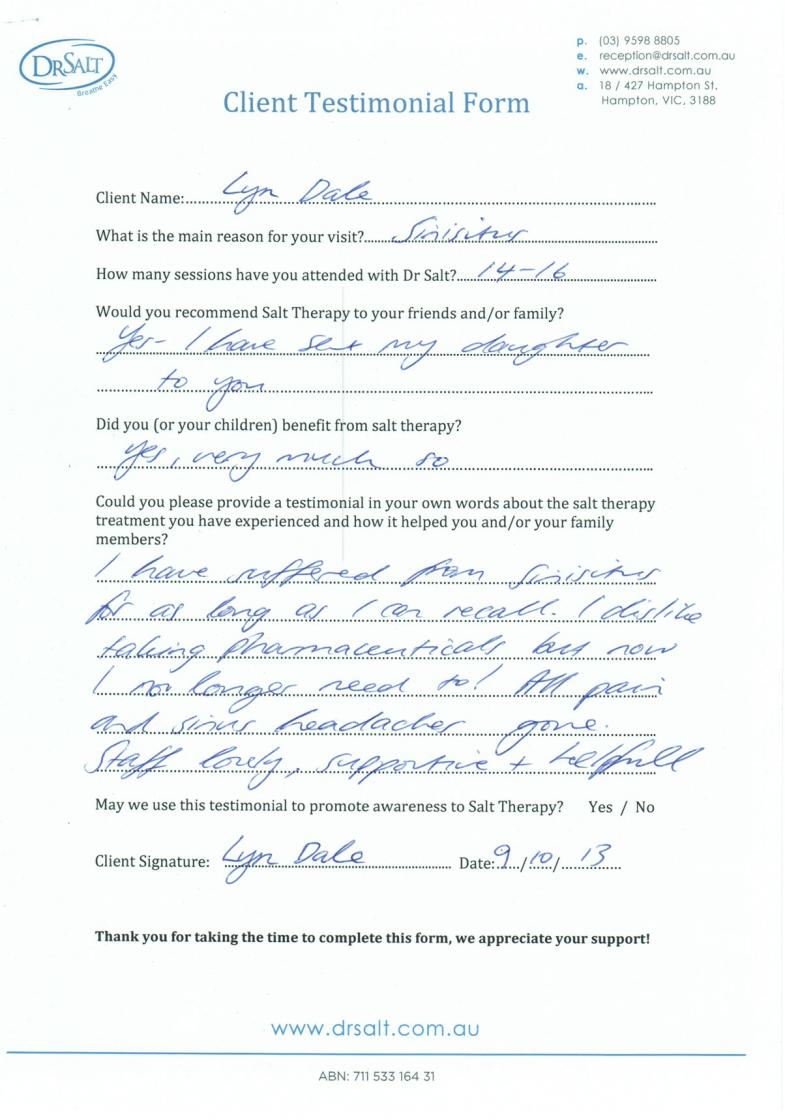 DRSALT
Breathe Easy
p. (03) 9598 8805
e. reception@drsalt.com.au
w. www.drsalt.com.au
a. 18 / 427 Hampton St.
Hampton, VIC, 3188
Client Testimonial Form
Client Name: Lyn Dale
What is the main reason for your visit? Sinisitus
How many sessions have you attended with Dr Salt? 14-16
Would you recommend Salt Therapy to your friends and/or family?
Yes- I have sent my daughter
to you
Did you (or your children) benefit from salt therapy?
Yes, very much so
Could you please provide a testimonial in your own words about the salt therapy
treatment you have experienced and how it helped you and/or your family
members?
I have suffered from Sinisitus
for as long as I can recall. I dislike
taking pharmaceuticals but now
I no longer need to! All pain
and sinus headaches gone.
Staff lovely, supportive + helpfull
May we use this testimonial to promote awareness to Salt Therapy? Yes / No
Client Signature: Lyn Dale Date: 9/10/13
Thank you for taking the time to complete this form, we appreciate your support!
www.drsalt.com.au
ABN: 711 533 164 31